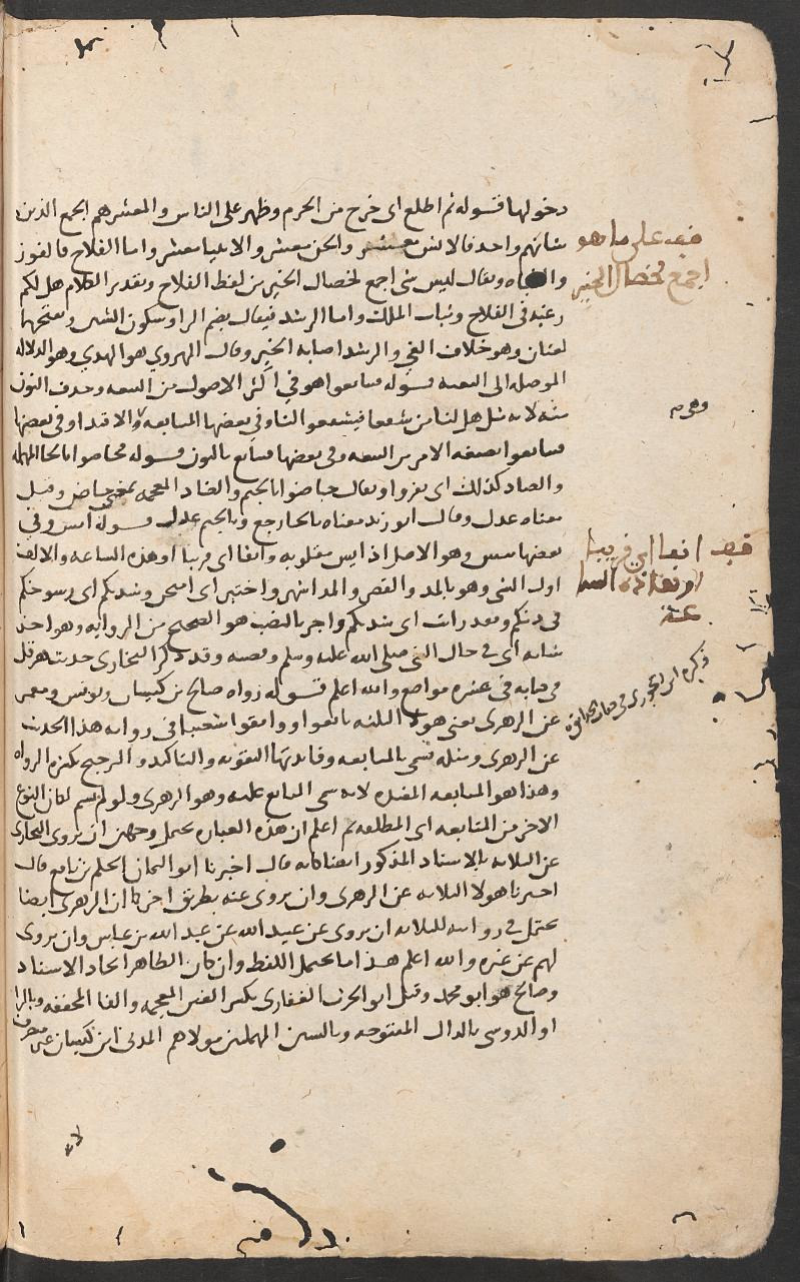 دخولها قوله ثم اطلع اى خرج من الحرم وظهر على الناس والمعشر هم الجمع الذين
شانهم واحد فالانس معشر والجن معشر والانبيا معشر واما الفلاح فالفوز
ويقال ليس شى اجمع لخصال الخير من لفظ الفلاح وتقدير الكلام هل لكم
رغبة فى الفلاح وثبات الملك واما الرشد فيقال بضم الرا وسكون الشين وبفتحها
لغتان وهو خلاف الغي والرشد اصابة الخير وقال الهروي هو الهدي وهو الدلالة
الموصلة الى البغية قوله فتبايعوا هو في اكثر الاصول من البيعة وحذف النون
منه لانه مثل هل لنا من شفعا فيشفعوا لنا وفي بعضها المتابعة والاقتدا وفى بعضها
فبايعوا بصيغة الامر من البيعة وفى بعضها نبايع بالنون قوله فحاصوا بالحا المهملة
والصاد كذلك اى نفروا ويقال جاضوا بالجيم والضاد المعجمة بمعنى حاص وقيل
معناه عدل وقال ابو زيد معناه بالحا رجع وبالجيم عدل قوله ايس وفي
بعضها يئس وهو الاصل اذ ايس مقلوبه وانفا اى قريبا او هذه الساعة والانف
اول الشى وهو بالمد والقصر والمد اشهر واختبر اى امتحن وشدتكم اى رسوخكم
فى دينكم
شانه اى في حال النبى صلى الله عليه وسلم وقد ذكر البخارى حديث هرقل
فى كتابه فى عشرة مواضع والله اعلم قوله رواه صالح بن كيسان ويونس ومعمر
عن الزهرى يعنى هولا الثلثة تابعوا ووافقوا شعيبا في رواية هذا الحديث
عن الزهرى ومثله يسمى بالمتابعة وفايدتها التقوية والتاكيد والترجيح بكثرة الرواة
وهذا هو المتابعة المقيدة لانه سمى المتابع عليه وهو الزهرى ولو لم يسم لكان النوع
الاخر من المتابعة اى المطلقة ثم اعلم ان هذه العبارة تحتمل وجهين ان يروى البخارى
عن الثلاثة بالاسناد المذكور ايضا كانه قال اخبرنا ابو اليمان الحكم بن نافع قال
اخبرنا هولا الثلاثة عن الزهرى وان يروى عنه بطريق اخر كما ان الزهرى ايضا
يحتمل في روايته للثلاثة ان يروى عن عبيد الله عن عبد الله بن عباس وان يروى
لهم عن غيره والله اعلم هذا ما يحتمل اللفظ وان كان الظاهر اتحاد الاسناد
وصالح هو ابو محمد وقيل ابو الحرث الغفارى بكسر الغين المعجمة والفا المخففة وبالرا
او الدوسى بالدال المفتوحة وبالسين المهملتين مولاهم المدنى ابن كيسان
قف على ما هو
اجمع لخصال الخير
قف انفا اى قريبا
او هذه السا
عة